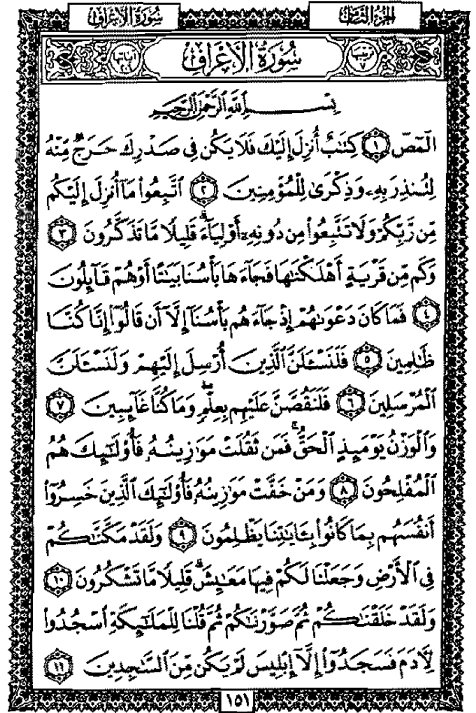 الجزء الثامن
سورة الأعراف
سُورَةُ الأَعْرَافِ
بِسْمِ اللَّهِ الرَّحْمَٰنِ الرَّحِيمِ
الٓمٓصٓ ١ كِتَٰبٌ أُنزِلَ إِلَيْكَ فَلَا يَكُن فِي صَدْرِكَ حَرَجٌ مِّنْهُ
لِتُنذِرَ بِهِۦ وَذِكْرَىٰ لِلْمُؤْمِنِينَ ٢ ٱتَّبِعُوا۟ مَآ أُنزِلَ إِلَيْكُم
مِّن رَّبِّكُمْ وَلَا تَتَّبِعُوا۟ مِن دُونِهِۦٓ أَوْلِيَآءَ ۗ قَلِيلًا مَّا تَذَكَّرُونَ ٣
وَكَم مِّن قَرْيَةٍ أَهْلَكْنَٰهَا فَجَآءَهَا بَأْسُنَا بَيَٰتًا أَوْ هُمْ قَآئِلُونَ
٤ فَمَا كَانَ دَعْوَىٰهُمْ إِذْ جَآءَهُم بَأْسُنَآ إِلَّآ أَن قَالُوٓا۟ إِنَّا كُنَّا
ظَٰلِمِينَ ٥ فَلَنَسْـَٔلَنَّ ٱلَّذِينَ أُرْسِلَ إِلَيْهِمْ وَلَنَسْـَٔلَنَّ
ٱلْمُرْسَلِينَ ٦ فَلَنَقُصَّنَّ عَلَيْهِم بِعِلْمٍ ۖ وَمَا كُنَّا غَآئِبِينَ ٧
وَٱلْوَزْنُ يَوْمَئِذٍ ٱلْحَقُّ ۚ فَمَن ثَقُلَتْ مَوَٰزِينُهُۥ فَأُو۟لَٰٓئِكَ هُمُ
ٱلْمُفْلِحُونَ ٨ وَمَنْ خَفَّتْ مَوَٰزِينُهُۥ فَأُو۟لَٰٓئِكَ ٱلَّذِينَ خَسِرُوٓا۟
أَنفُسَهُم بِمَا كَانُوا۟ بِـَٔايَٰتِنَا يَظْلِمُونَ ٩ وَلَقَدْ مَكَّنَّٰكُمْ
فِي ٱلْأَرْضِ وَجَعَلْنَا لَكُمْ فِيهَا مَعَٰيِشَ ۗ قَلِيلًا مَّا تَشْكُرُونَ ١٠
وَلَقَدْ خَلَقْنَٰكُمْ ثُمَّ صَوَّرْنَٰكُمْ ثُمَّ قُلْنَا لِلْمَلَٰٓئِكَةِ ٱسْجُدُوا۟
لِـَٔادَمَ فَسَجَدُوٓا۟ إِلَّآ إِبْلِيسَ لَمْ يَكُن مِّنَ ٱلسَّٰجِدِينَ ١١
١٥١